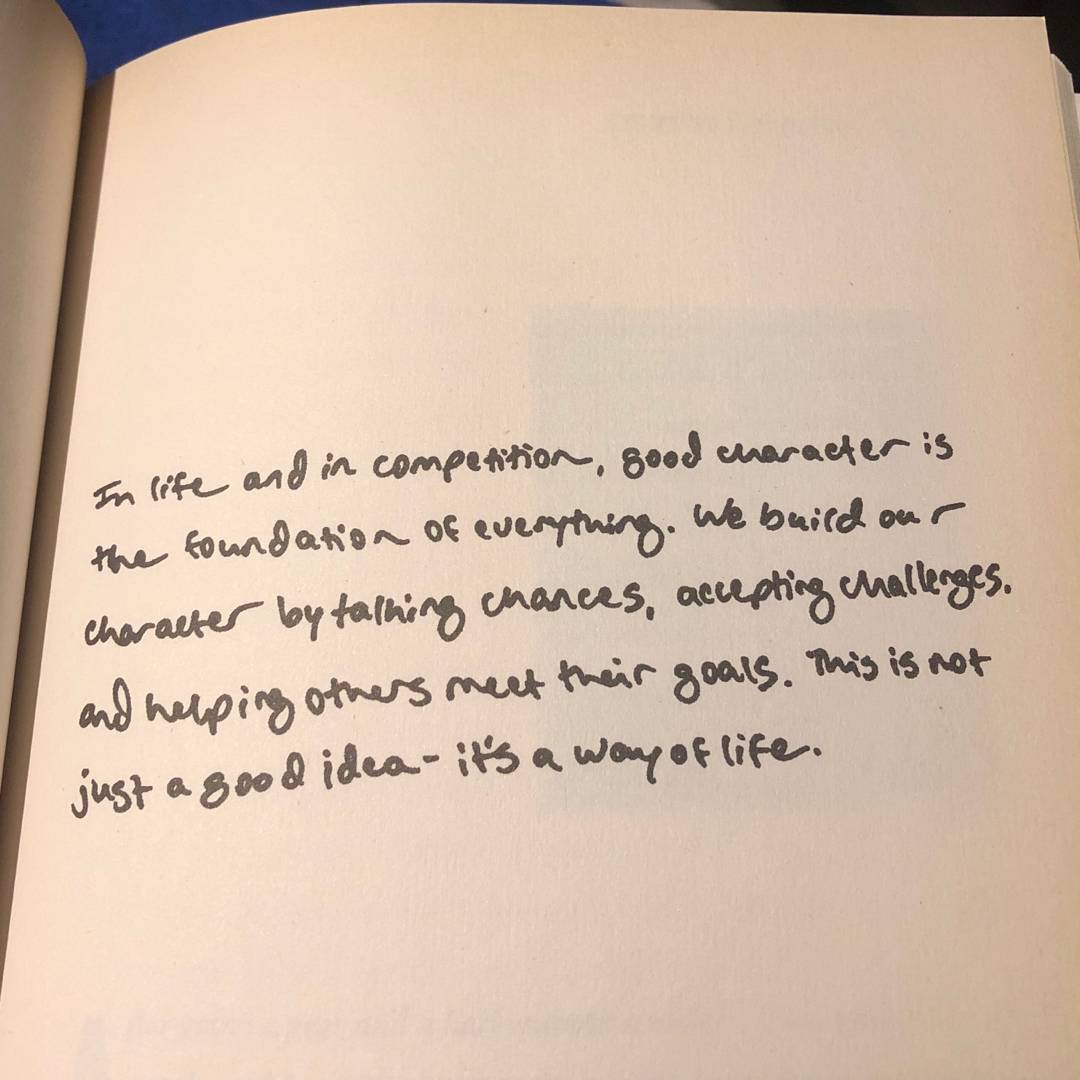 In life and in competition, good character is
the foundation of everything. We build our
character by talking chances, accepting challenges.
and helping others meet their goals. This is not
just a good idea - it's a way of life.